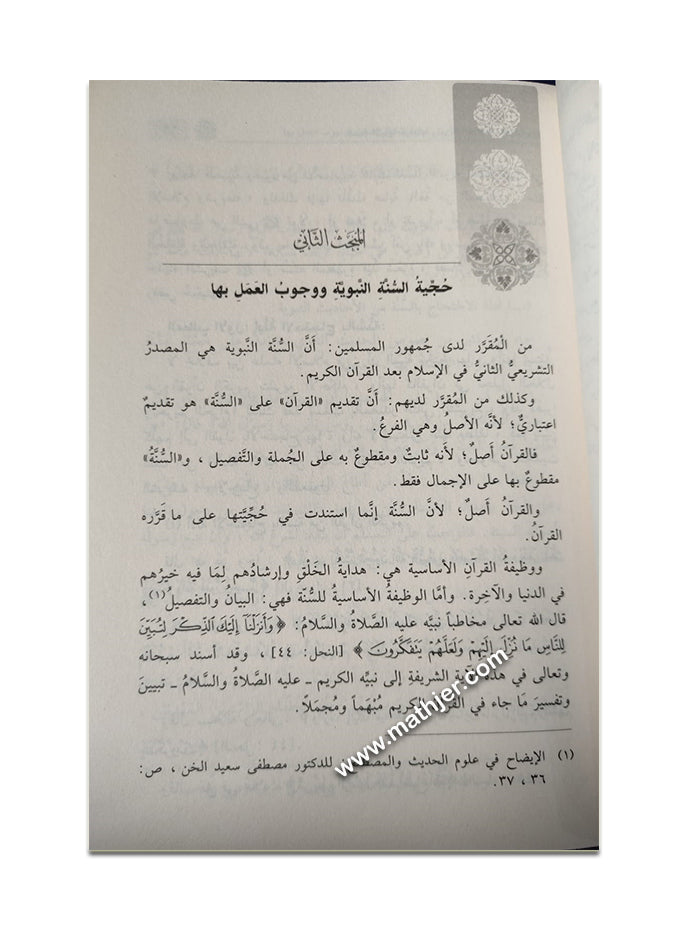 المبحث الثاني
حُجِّيةُ السُّنَّةِ النَّبويَّةِ ووجوبُ العَمَلِ بها
من الْمُقَرَّر لدى جُمهور المسلمين: أَنَّ السُّنَّة النَّبوية هي المصدرُ
التشريعيُّ الثانيُّ في الإسلام بعد القرآن الكريم.
وكذلك من المُقرَّر لديهم: أَنَّ تقديم «القرآن» على «السُّنَّة» هو تقديمٌ
اعتباريٌّ؛ لأنَّه الأصلُ وهي الفرعُ.
فالقرآنُ أَصلٌ؛ لأنه ثابتٌ ومقطوعٌ به على الجُملة والتَّفصيل، و«السُّنَّةُ»
مقطوعٌ بها على الإجمال فقط.
والقرآنُ أَصلٌ؛ لأنَّ السُّنَّة إنَّما استندت في حُجِّيَّتها على ما قَرَّره
القرآنُ.
ووظيفةُ القرآنِ الأساسية هي: هدايةُ الخَلْقِ وإرشادُهم لِمَا فيه خيرُهم
في الدنيا والآخِرة. وأمَّا الوظيفةُ الأساسيةُ للسُّنَّة فهي: البيانُ والتَّفصيلُ(١)،
قال الله تعالى مخاطباً نبيَّه عليه الصَّلاةُ والسَّلامُ: ﴿وَأَنزَلْنَآ إِلَيْكَ ٱلذِّكْرَ لِتُبَيِّنَ
لِلنَّاسِ مَا نُزِّلَ إِلَيْهِمْ وَلَعَلَّهُمْ يَتَفَكَّرُونَ﴾ [النحل: ٤٤]، وقد أسند سبحانه
وتعالى في هذه الآية الشريفةِ إلى نبيِّه الكريم ـ عليه الصَّلاةُ والسَّلامُ ـ تبيينَ
وتفسيرَ مَا جاء في القرآن الكريم مُبْهَماً ومُجمَلاً.
(١) الإيضاح في علوم الحديث والمصطلح للدكتور مصطفى سعيد الخن، ص:
٣٦، ٣٧.
www.mathjer.com